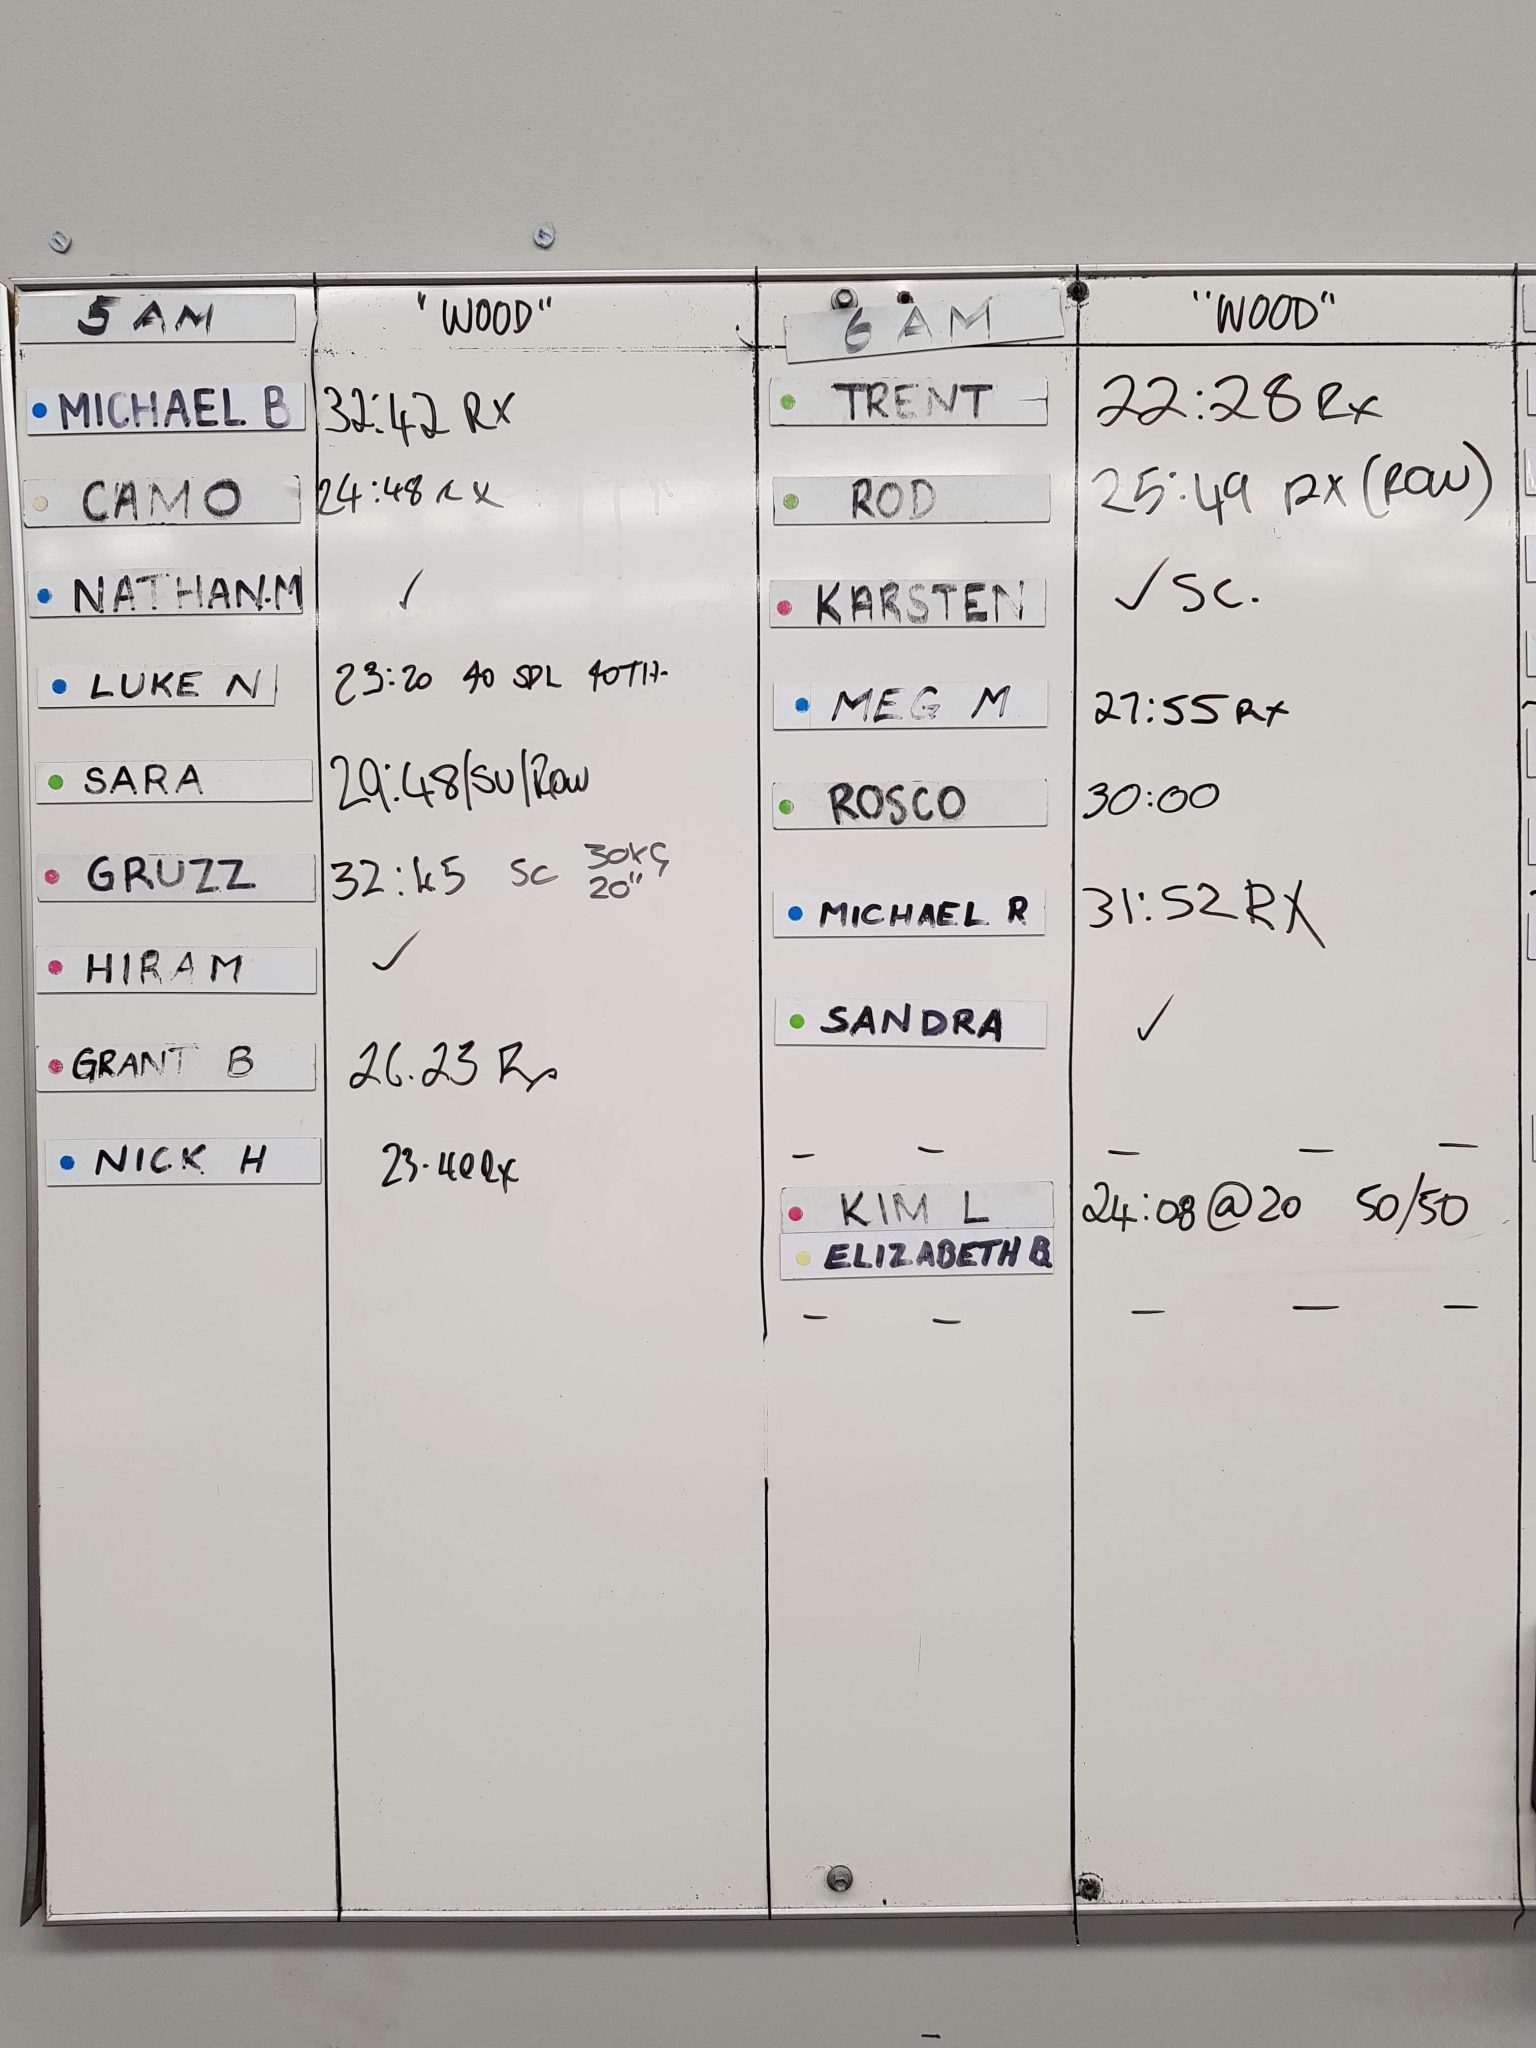 5 AM "WOOD"
MICHAEL B 32:42 RX
CAMO 24:48 RX
NATHAN.M ✓
LUKE N 23:20 40
SARA 29:48/SU/ROW
GRUZZ 32:45 SC 30KG
20"
HIRAM ✓
GRANT B 26.23
NICK H RX
6 AM "WOOD"
TRENT 22:28 RX
ROD 25:49 RX (ROW)
KARSTEN ✓ SC.
MEG M 27:55 RX
ROSCO 30:00
MICHAEL R 31:52 RX
SANDRA ✓
– – – – –
KIM L 24:08 @ 20 50/50
ELIZABETH B
– – – – –